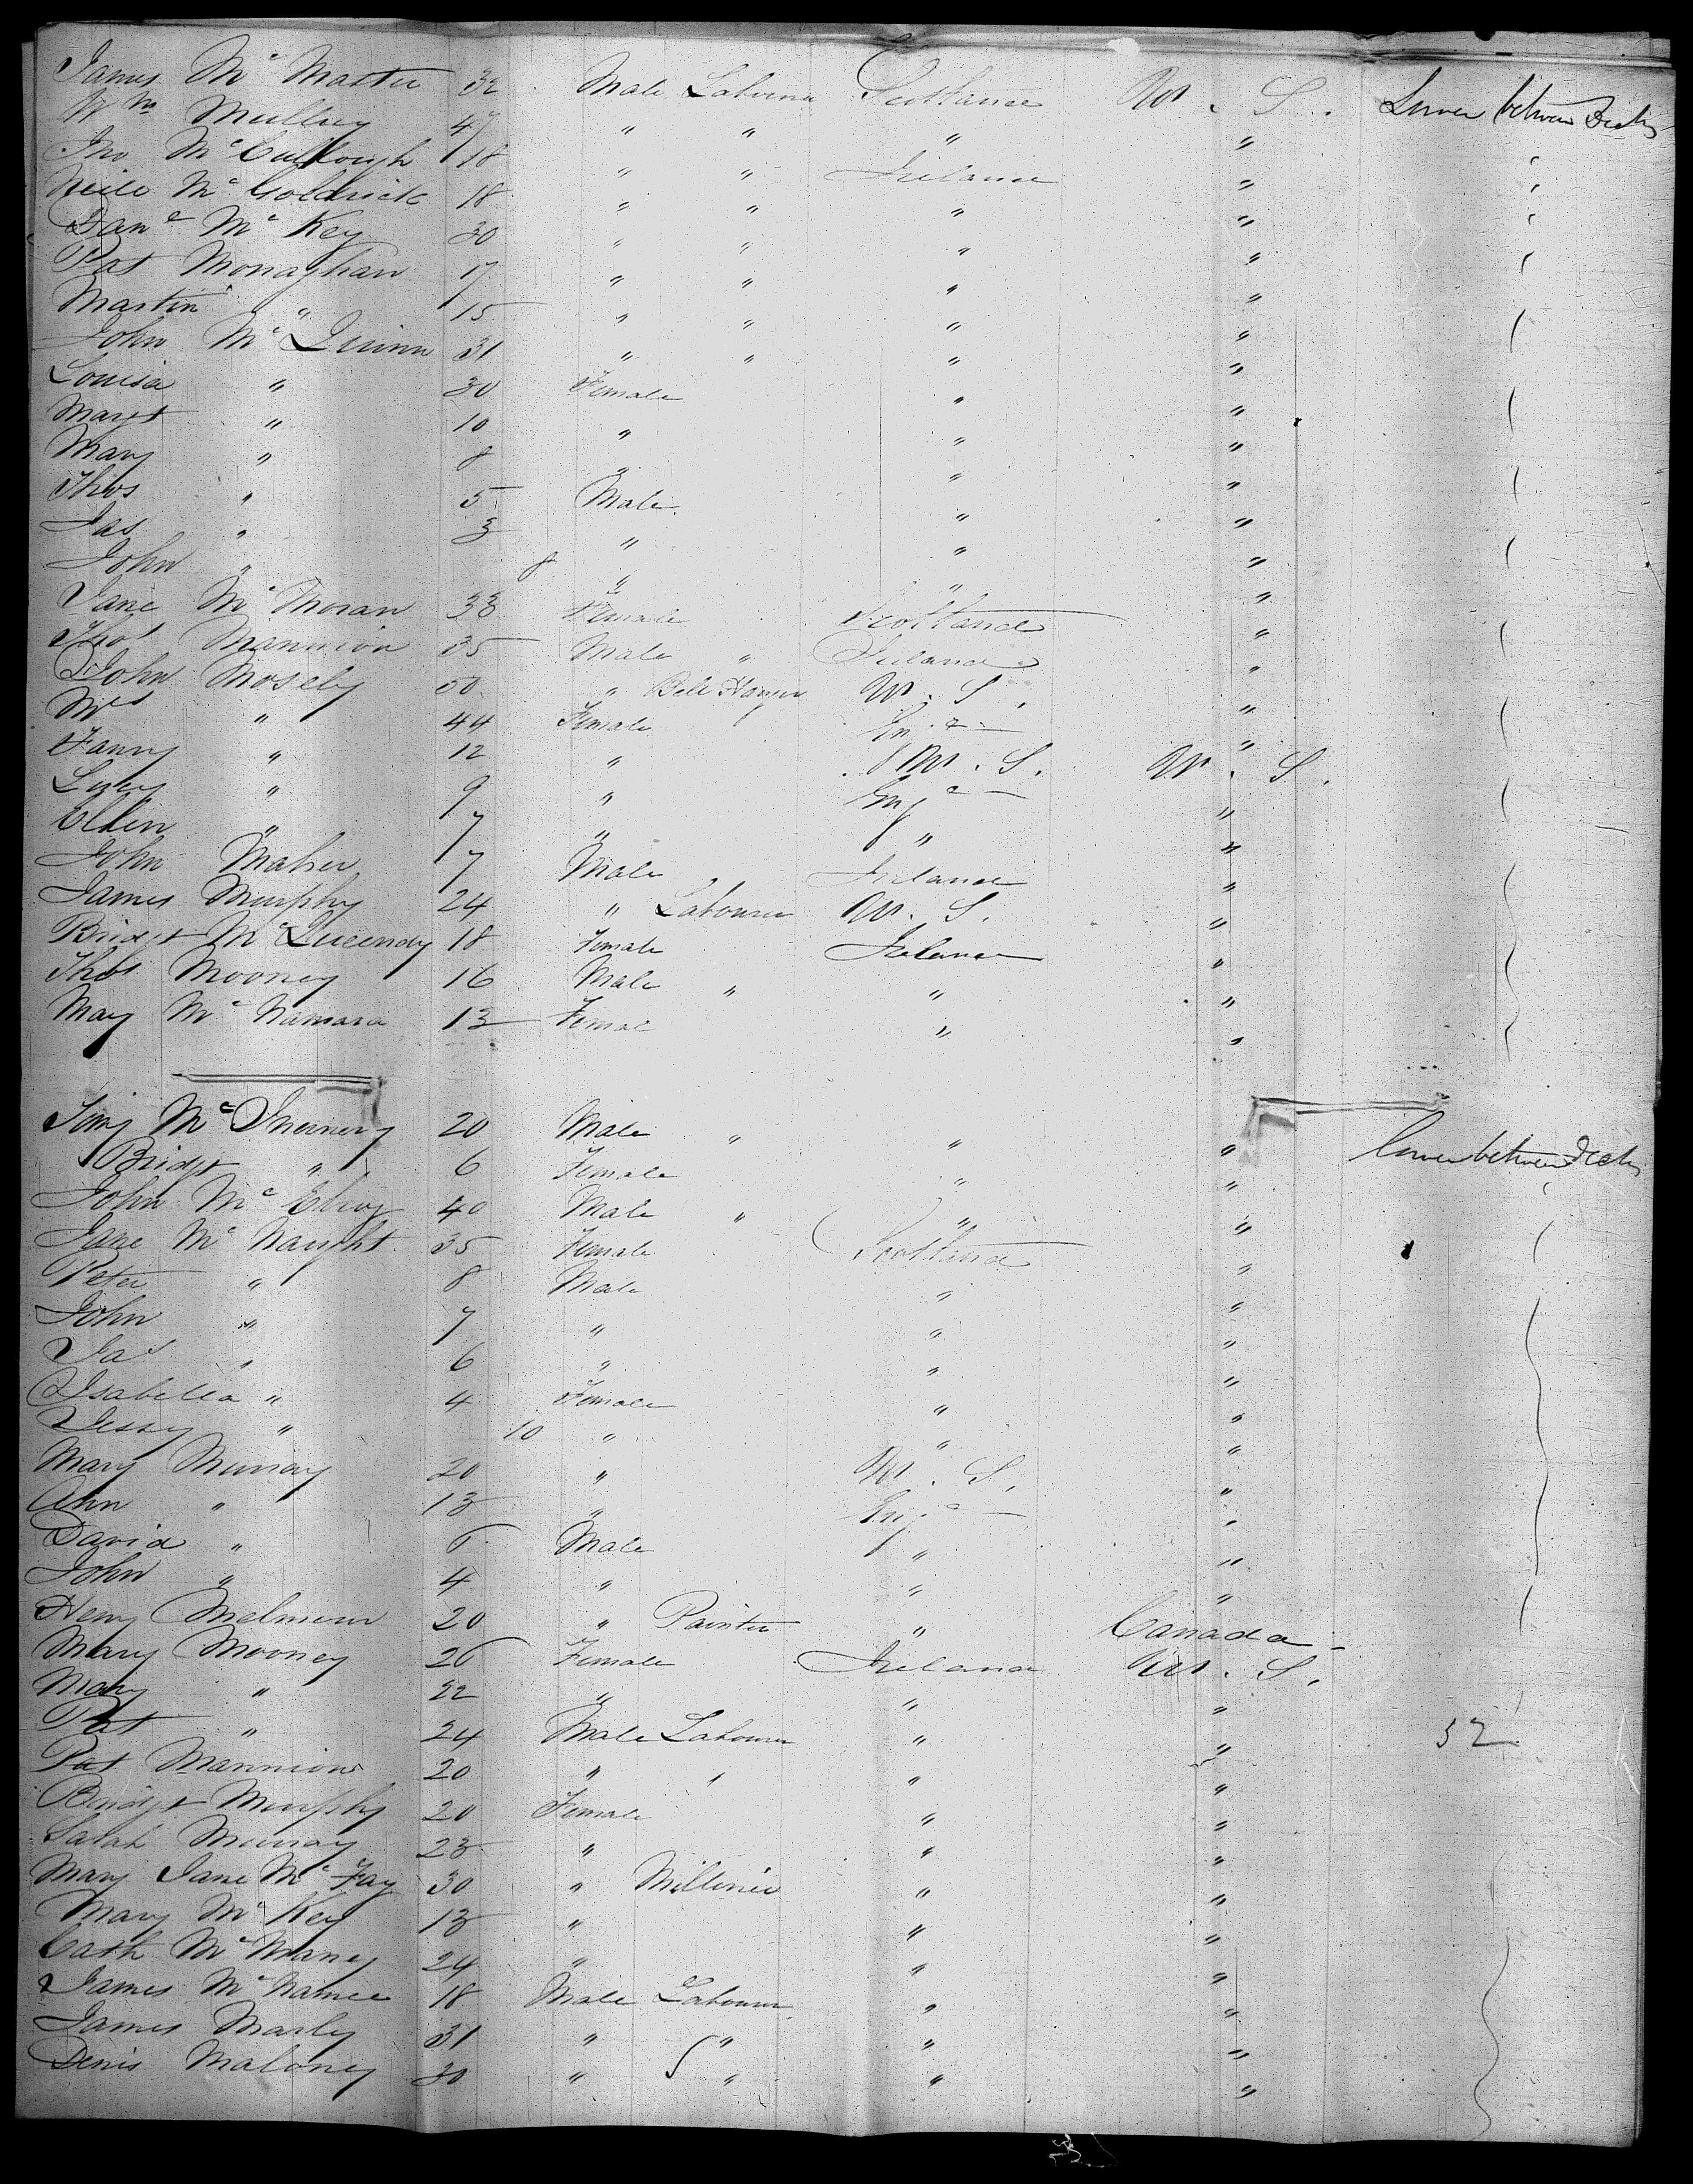 James Mc Master 32 Male Labourer Scotland U. S. Lower between Decks
Wm 47 " " " "
Jno Mc Cullough 18 " " Ireland "
Neile Mc Goldrick 18 " " " "
Danl Mc Key 30 " " " "
Pat Monaghan 17 " " " "
Martin " 15 " " " "
John Mc Quinn 31 " " " "
Louisa " 30 Female " "
Margt " 10 " " "
Mary " 8 " " "
Thos " 5 Male " "
Jas " 3 " " "
John " 8 " " "
Jane Mc Moran 33 Female Scotland "
Thos Mannion 35 Male " Ireland "
John Mosely 50 " Bell Hanger U. S. "
Mrs " 44 Female Engd "
Fanny " 12 " U. S. U. S.
Lucy " 9 " Engd "
Ellen " 7 " " "
John Maher 7 Male Ireland "
James Murphy 24 " Labourer U. S. "
Bridgt 18 Female Ireland "
Thos Mooney 16 Male " " "
May Mc Namara 13 Female " "
Mc Inerney 20 Male " " " Lower between Decks
Bridgt " 6 Female " "
John Mc Elroy 40 Male " " "
Jane Mc Naught 35 Female Scotland "
Peter " 8 Male " "
John " 7 " " "
Jas " 6 " " "
Isabella " 4 Female " "
Jessy " 10 " " "
Mary Murray 20 " U. S. "
Ann " 13 " Engd "
David " 6 Male " "
John " 4 " " "
Henry 20 " Painter " Canada
Mary Mooney 26 Female Ireland U. S.
Mary " 22 " " "
Pat " 24 Male Labourer " " 52
Pat Mannion 20 " " " "
Bridgt Murphy 20 Female " "
Sarah Murray 23 " " "
Mary Jane Mc Fay 30 " Milliner " "
Mary Mc Key 13 " " "
Cath Mc Maney 24 " " "
James Mc Namee 18 Male Labourer " "
James Marly 31 " " " "
Denis Maloney 30 " " " "